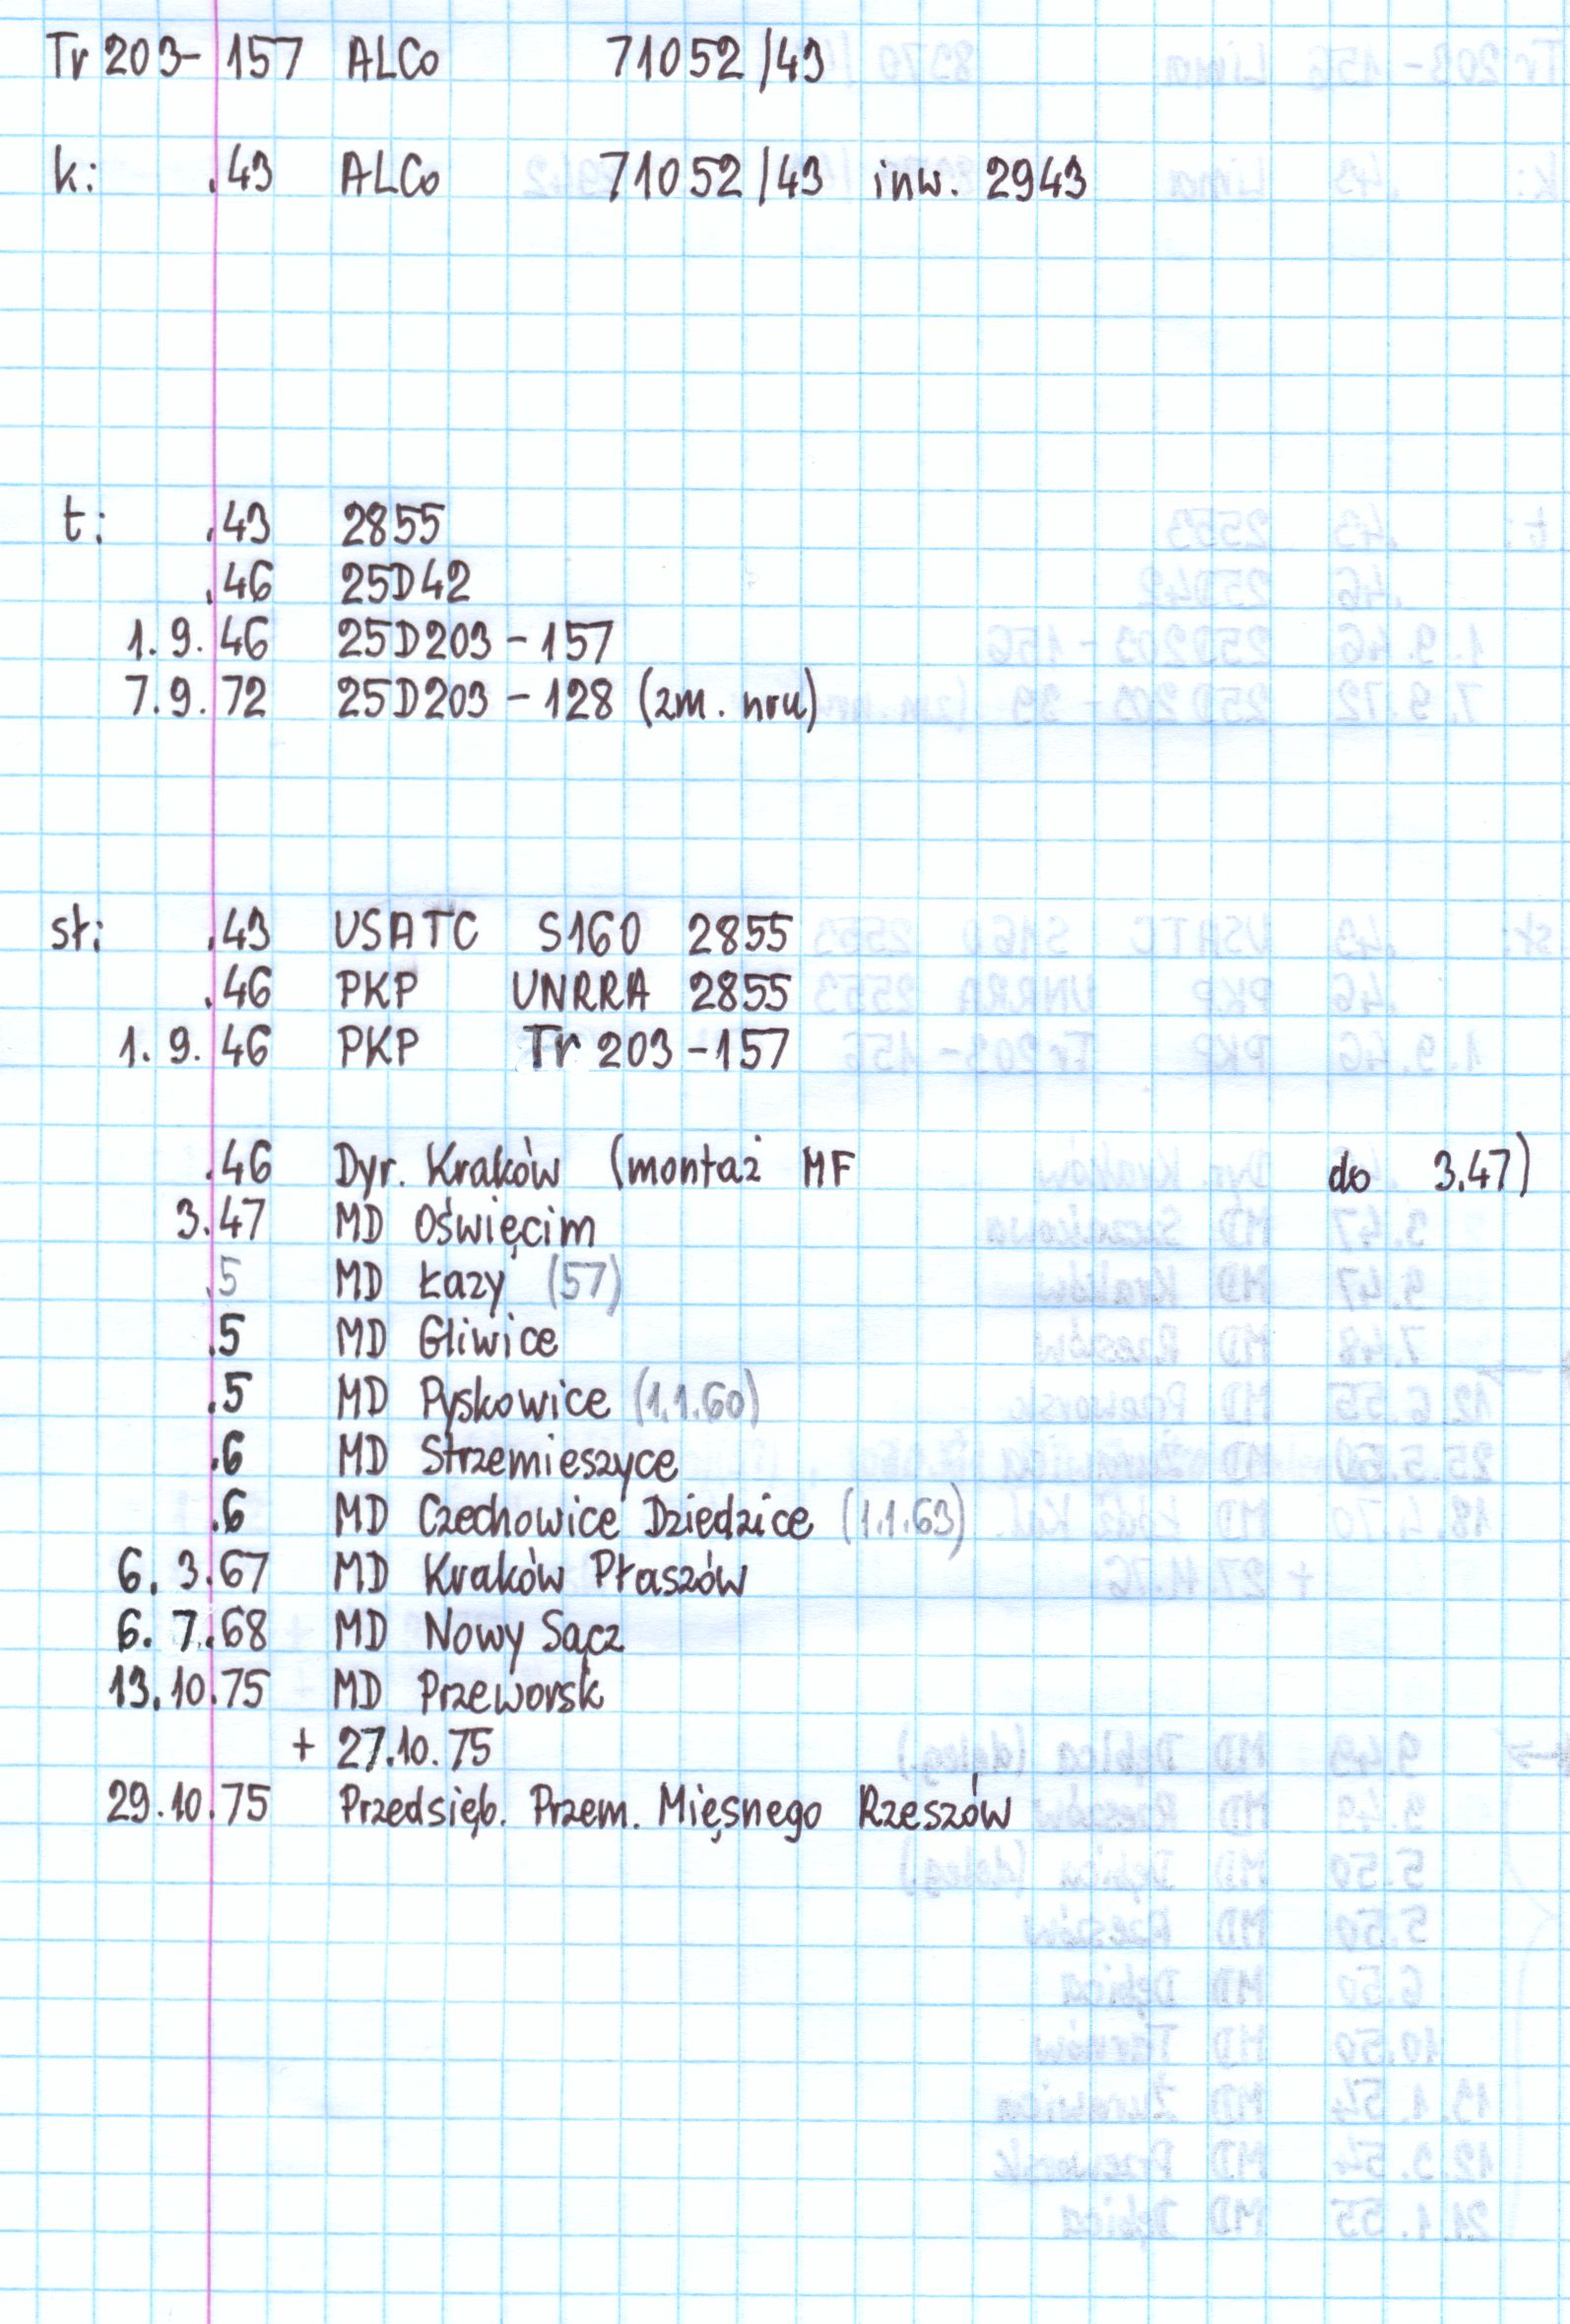 Tr 203-157 ALCo 71052/43
k: .43 ALCo 71052/43 inw. 2943
t: .43 2855
.46 25D42
1.9.46 25D203-157
7.9.72 25D203-128 (zm. nru)
st: .43 USATC S160 2855
.46 PKP UNRRA 2855
1.9.46 PKP Tr 203-157
.46 Dyr. Kraków (montaż MF do 3.47)
3.47 MD Oświęcim
.5 MD Łazy (57)
.5 MD Gliwice
.5 MD Pyskowice (1.1.60)
.6 MD Strzemieszyce
.6 MD Czechowice Dziedzice (1.1.63)
6.3.67 MD Kraków Płaszów
6.7.68 MD Nowy Sącz
13.10.75 MD Przeworsk
+ 27.10.75
29.10.75 Przedsięb. Przem. Mięsnego Rzeszów